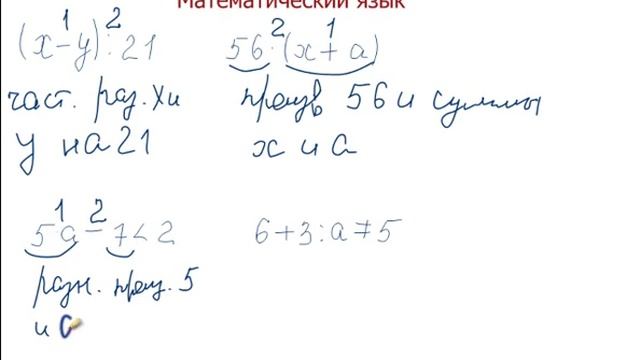 Математический язык
1 2
(x-y):21
част. раз. x и
y на 21
2 1
56·(x+a)
произв 56 и суммы
x и a
1 2
5a-7<2
разн. произ. 5
и a
6+3:a≠5